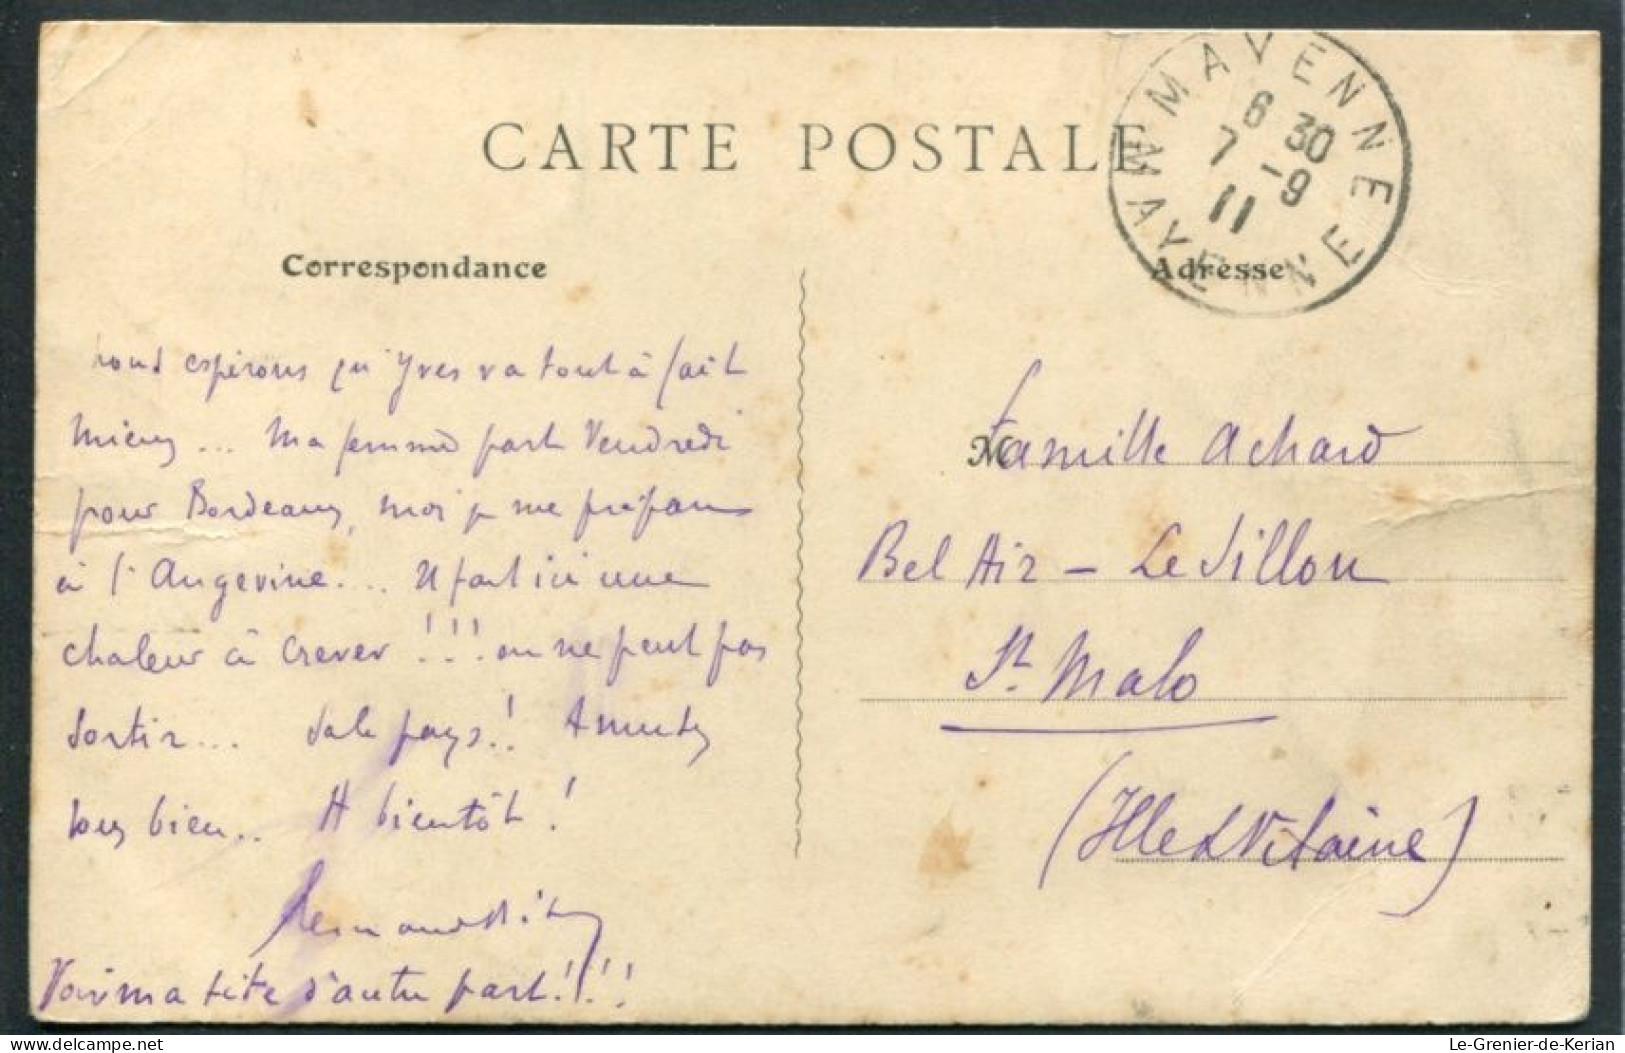 CARTE POSTALE
MAYENNE
6 30
7 -9
11
MAYENNE
Correspondance
Adresse
nous espérons qu'Yves va tout à fait
mieux... Ma femme part Vendredi
pour Bordeaux, moi je me prépare
à l'Angevine.... Il fait ici une
chaleur à crever !!! on ne peut pas
sortir... Sale pays!! Amusez
vous bien.. A bientôt !
Voir ma tête d'autre part!!!
M
Famille Achard
Bel Air - Le Sillon
St. Malo
(Ille & Vilaine)
Le-Grenier-de-Kerian
delcampe.net